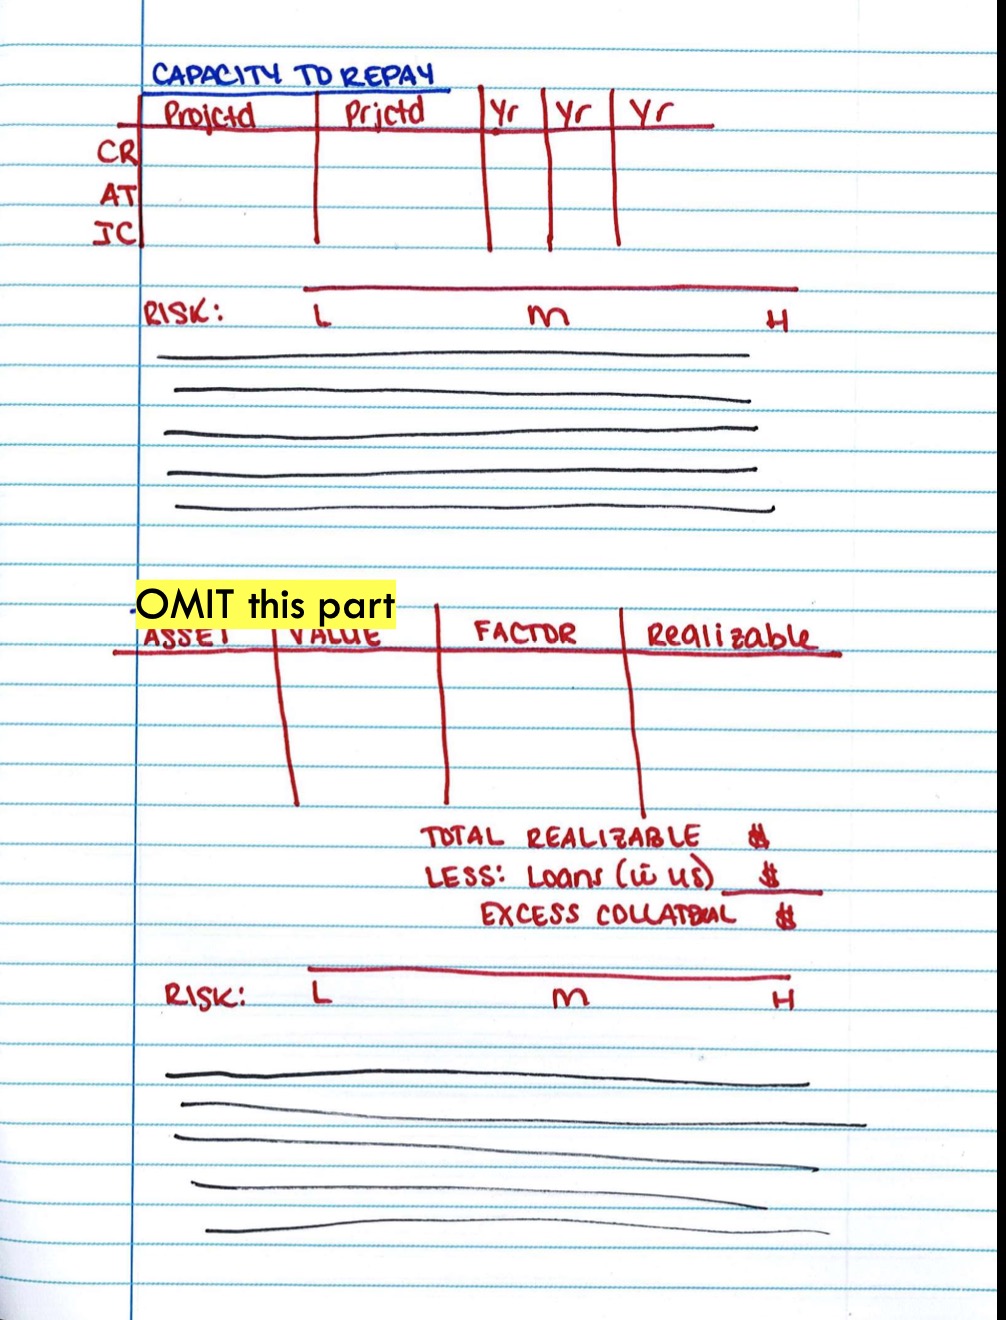 CAPACITY TO REPAY
Projctd Prjctd Yr Yr Yr
CR
AT
IC
RISK: L M H
OMIT this part
ASSET VALUE FACTOR Realizable
TOTAL REALIZABLE $
LESS: Loans (w̄ us) $
EXCESS COLLATERAL $
RISK: L M H